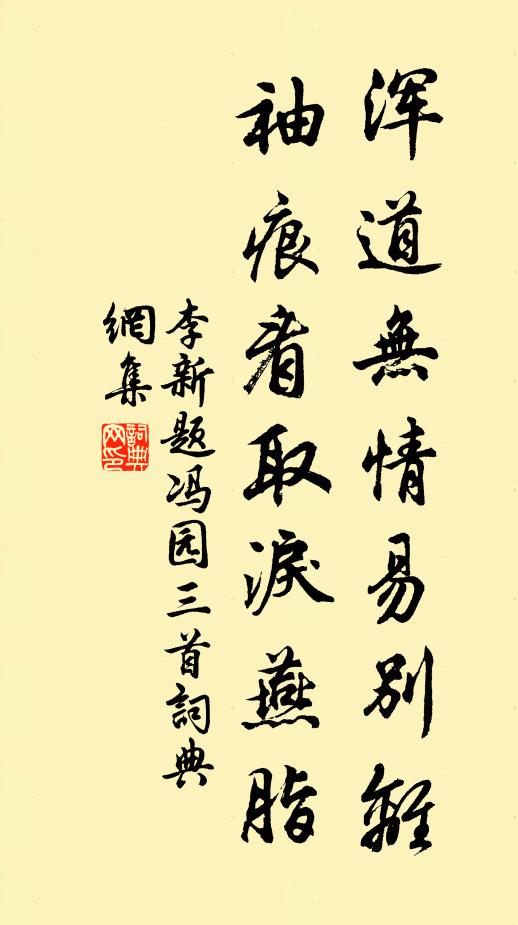 浑道無情易别離
袖痕看取淚燕脂
李新题冯园三首詞典
網集
詞典网印